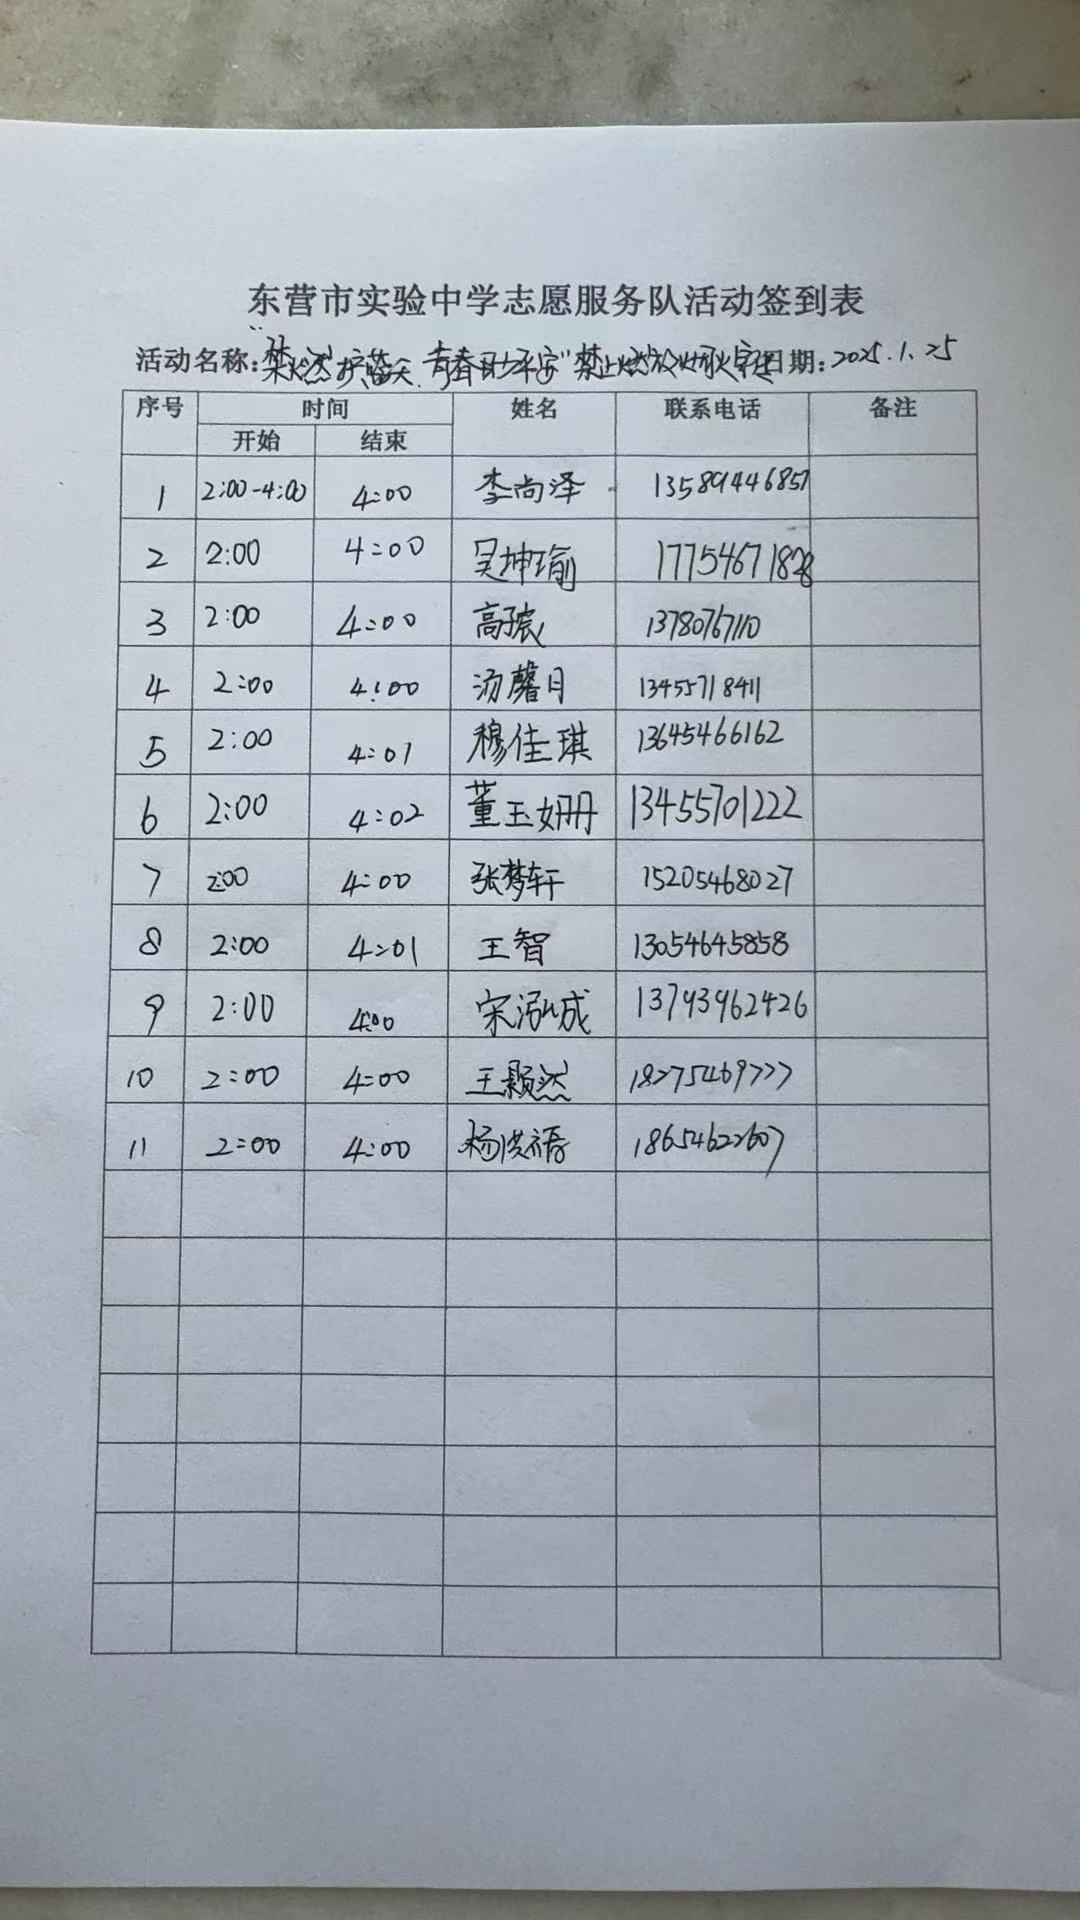 东营市实验中学志愿服务队活动签到表
活动名称:"禁燃护蓝天 青春 平安"禁止燃放烟火宣 日期:2025.1.25
序号 时间 姓名 联系电话 备注
开始 结束
1 2:00-4:00 4:00 李尚泽 13589446857
2 2:00 4:00 吴坤瑜 1775467182
3 2:00 4:00 高 13780767110
4 2:00 4:00 汤馨月 13455718411
5 2:00 4:01 穆佳琪 13645466162
6 2:00 4:02 董玉姗 13455701222
7 2:00 4:00 张梦轩 15205468027
8 2:00 4:01 王智 13054645858
9 2:00 4:00 宋泓成 13793962426
10 2:00 4:00 王颢然
11 2:00 4:00 杨洪 18654622607